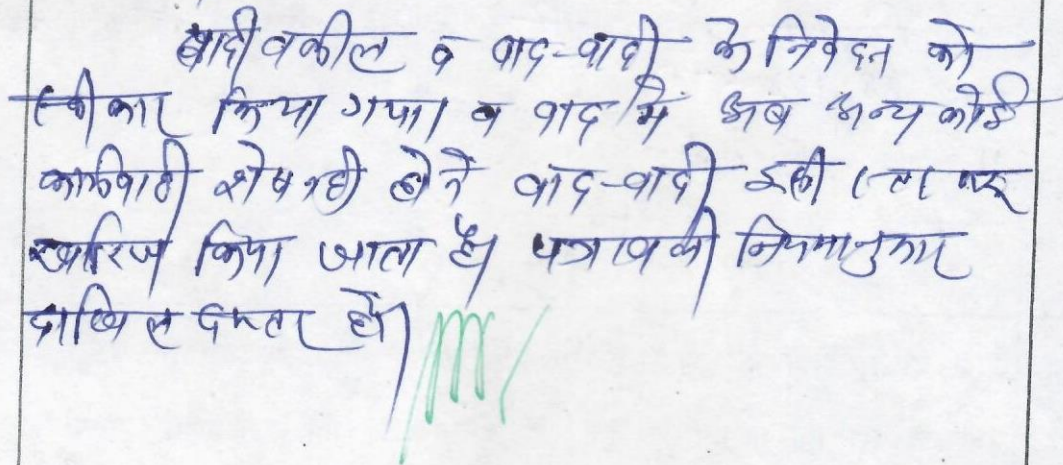 वादी वकील व वाद-वादी के निवेदन को
स्वीकार किया गया। व वाद में अब अन्य कोई
कार्यवाही शेष नही होने वाद-वादी इसी स्तर पर
खारिज किया जाता है। पत्रावली नियमानुसार
दाखिल दफ्तर हो।